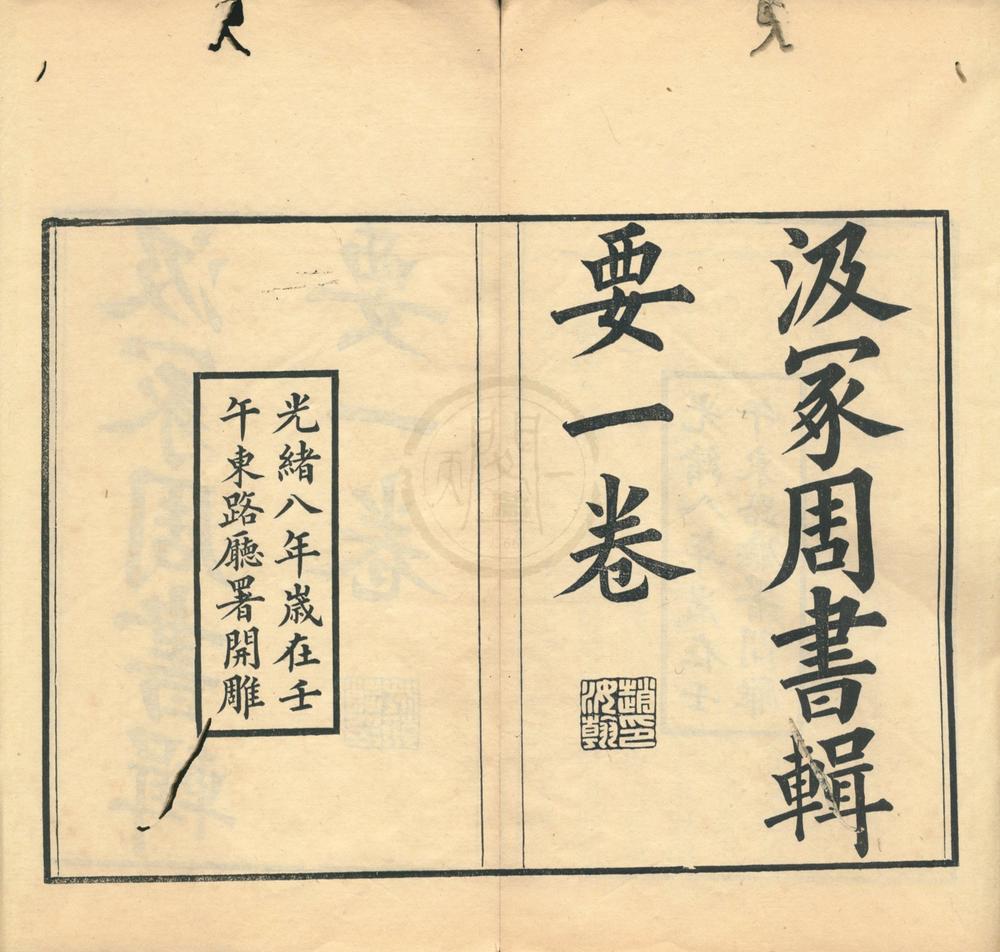 汲冢周書輯
要一卷
趙印
汝翰
光緒八年嵗在壬
午東路廳署開雕